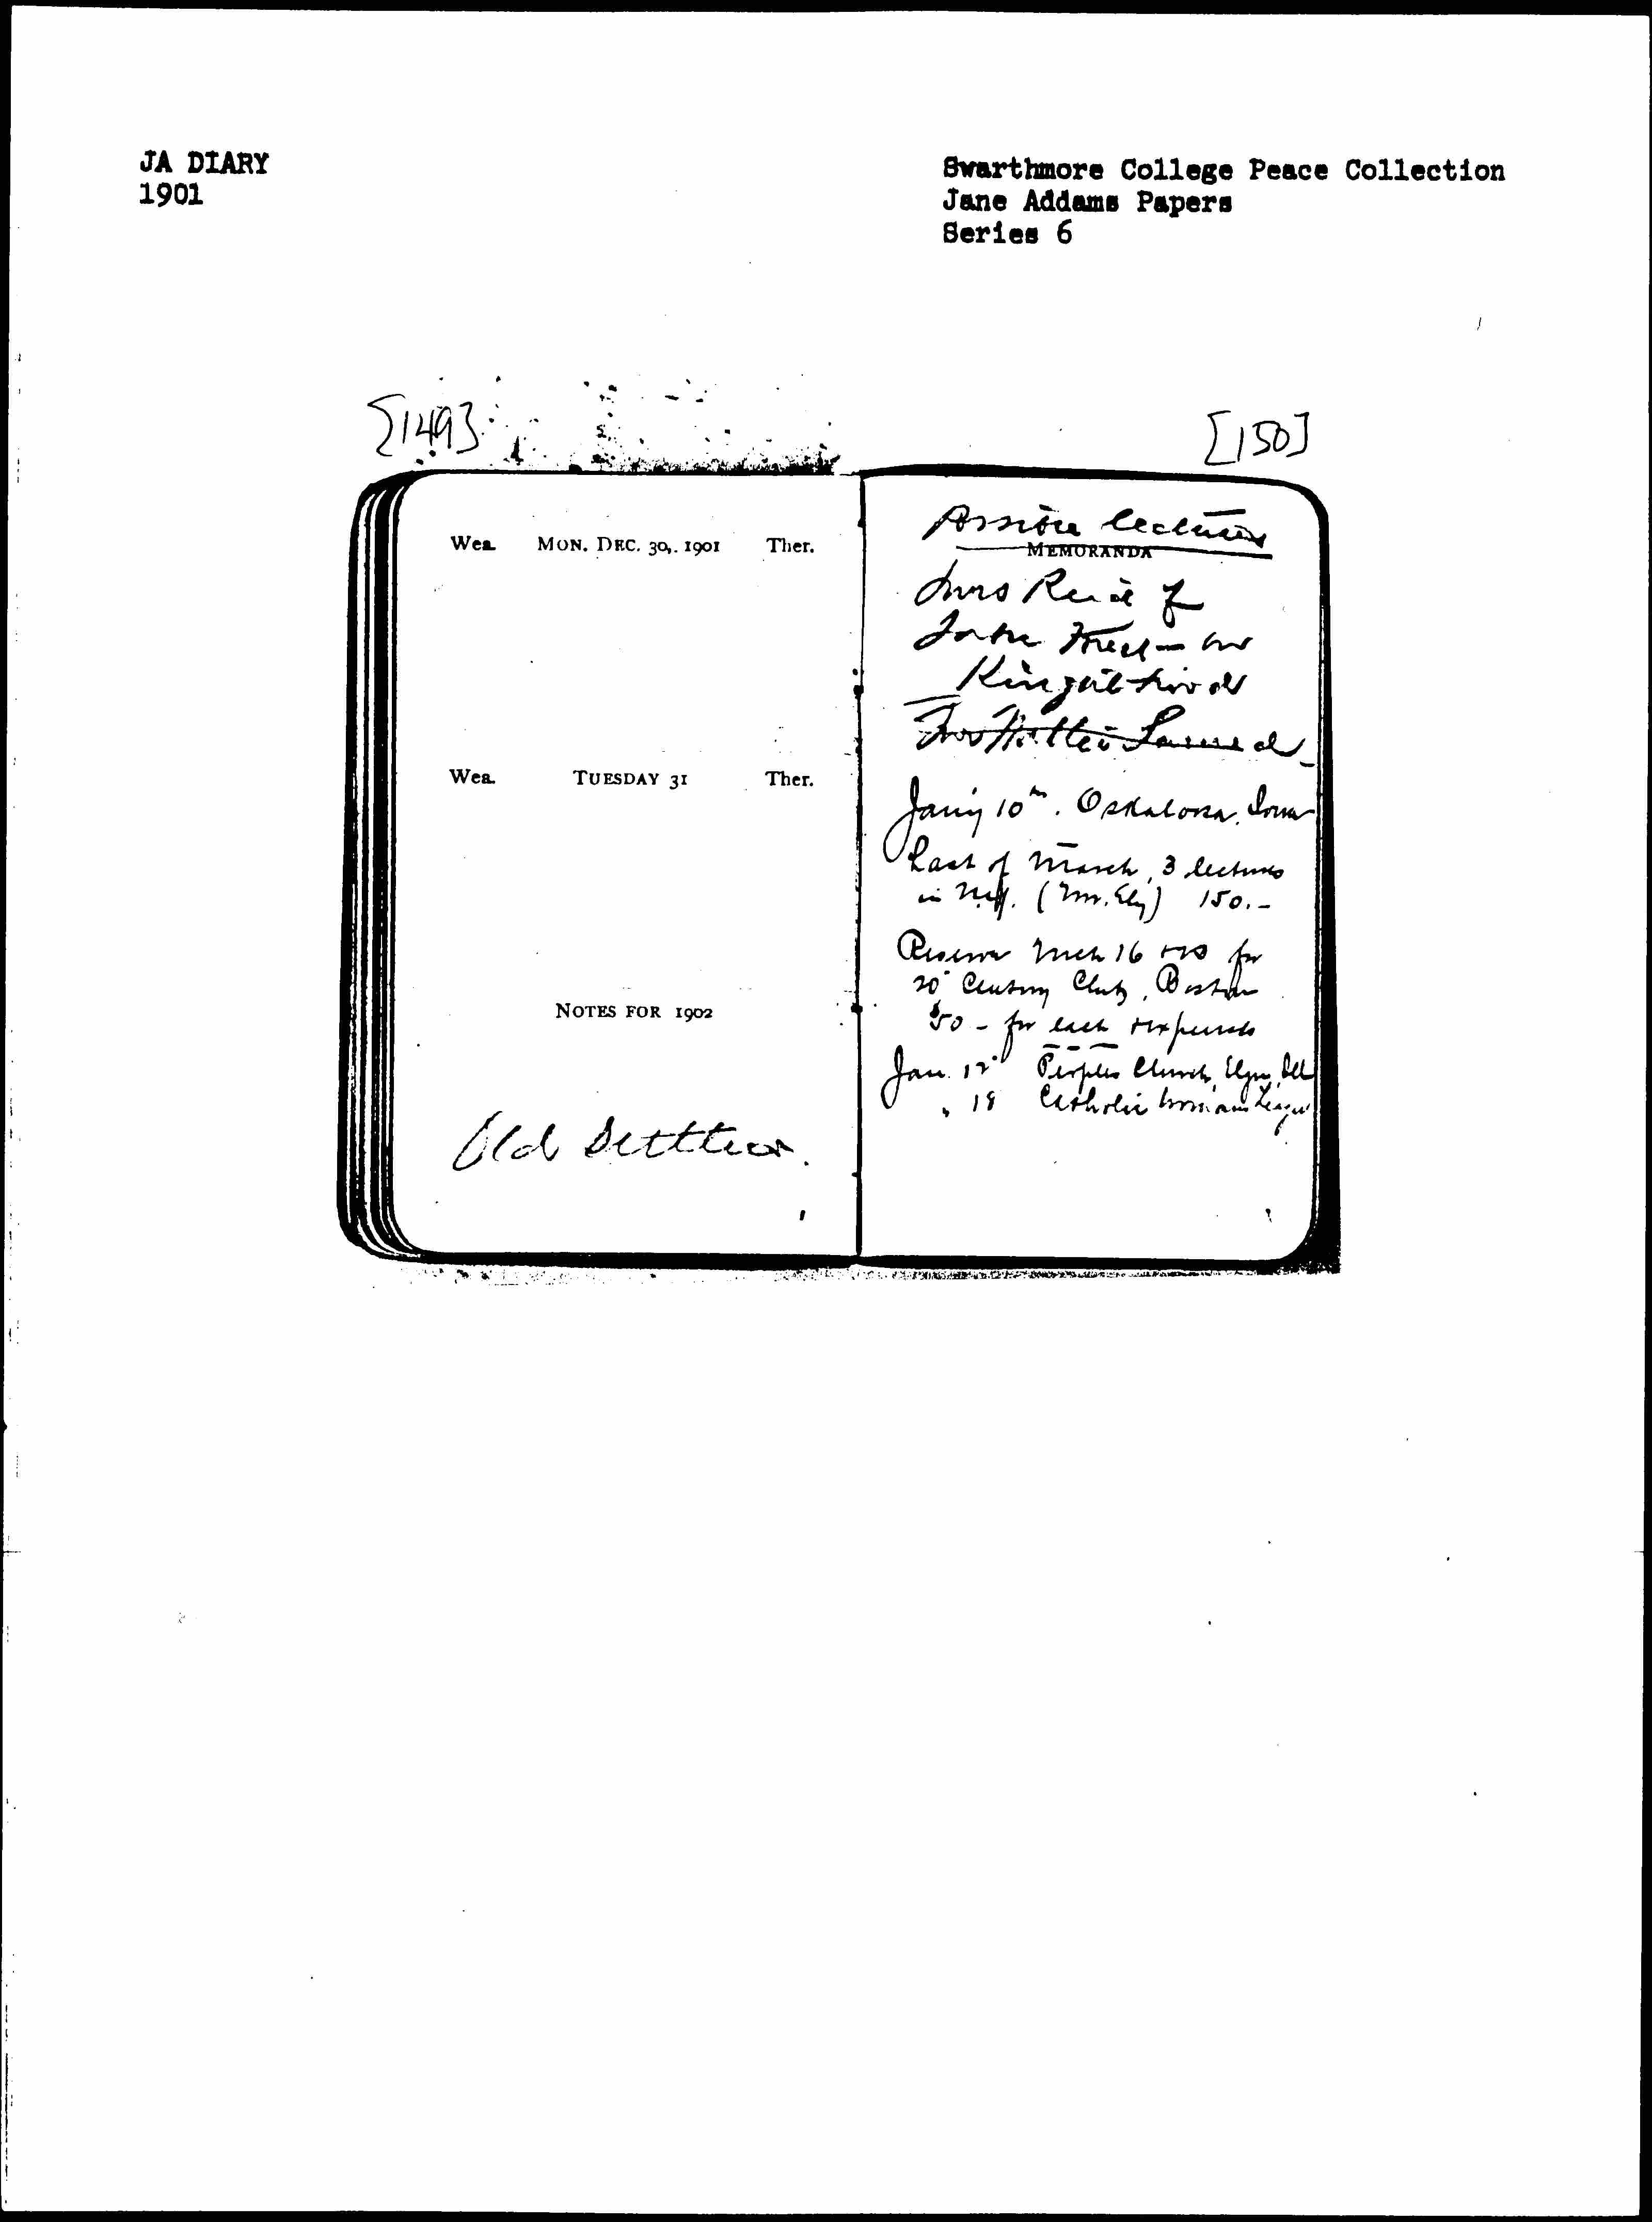 JA DIARY
1901
Swarthmore College Peace Collection
Jane Addams Papers
Series 6
[149]
[150]
Wea. MON. DEC. 30, 1901 Ther.
Wea. TUESDAY 31 Ther.
NOTES FOR 1902
Old Settlers.
Possible lectures
MEMORANDA
Mrs of
Lake Forest
Jan'y 10th. Oskaloosa, Iowa
Last of March, 3 lectures
in (Mr. Ely) 150.-
Reserve Mch 16 for
20" Century Club, Boston
$50 - for each + expenses
Jan. 12" Peoples Church, Elgin, Ill
" 18 Catholic Womans League